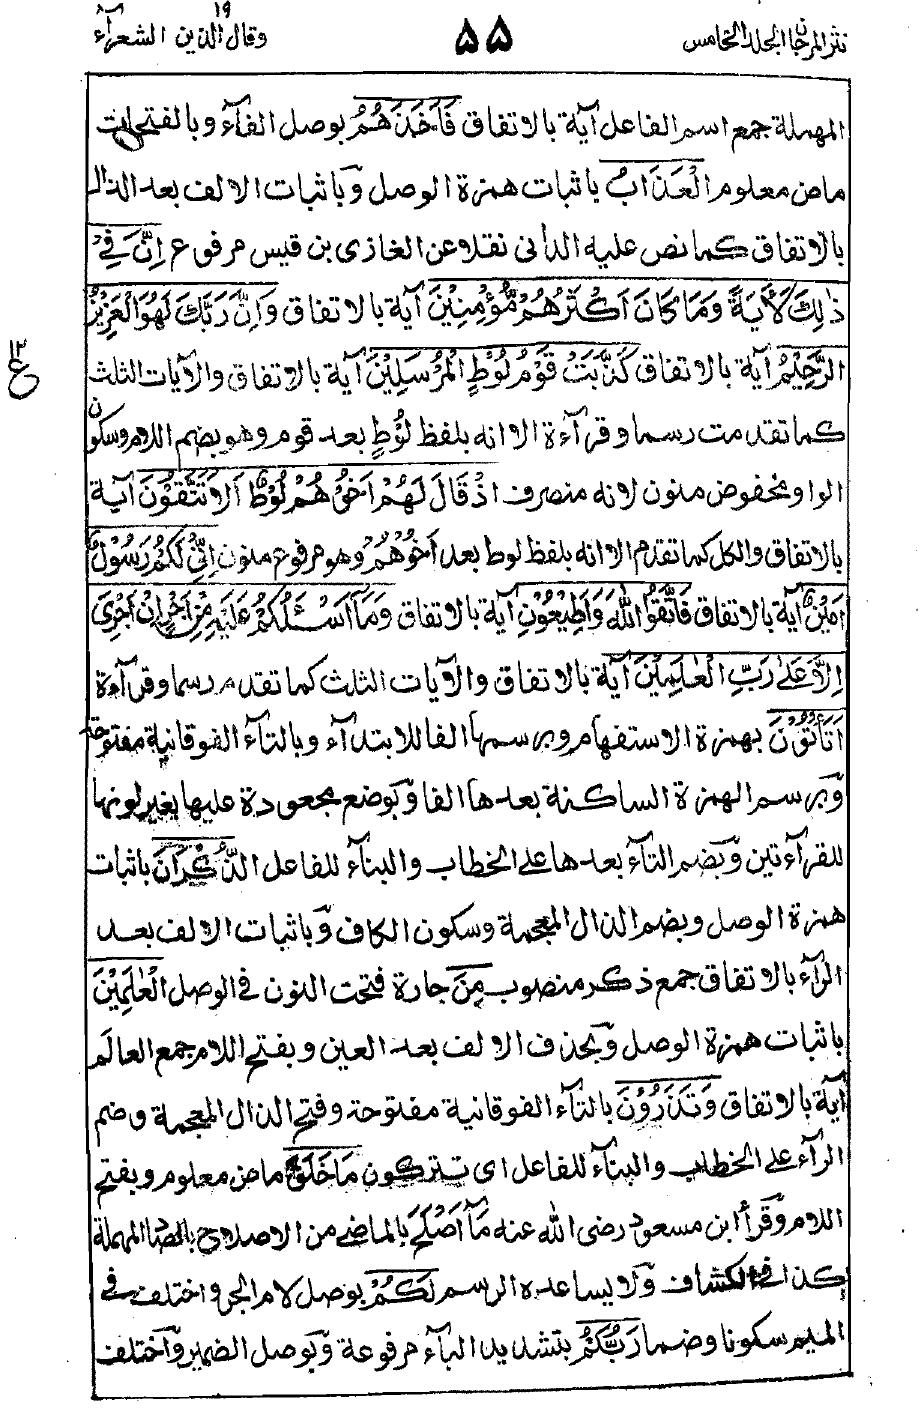 نثر المرجان المجلد الخامس
۵۵
وقال الذين ۱۹ الشعرآء
المهملة جمع اسم الفاعل آية بالاتفاق فَأَخَذَهُمُ بوصل الفآء وبالفتحات
ماض معلوم الْعَذَابُ باثبات همزة الوصل وباثبات الالف بعد الذال
بالاتفاق كما نص عليه الدانى نقلا عن الغازى بن قيس مرفوع اِنَّ فِيْ
ذٰلِكَ لَاٰيَةً وَمَا كَانَ اَكْثَرُهُمْ مُّؤْمِنِيْنَ آية بالاتفاق وَاِنَّ رَبَّكَ لَهُوَ الْعَزِيْزُ
الرَّحِيْمُ آية بالاتفاق كَذَّبَتْ قَوْمُ لُوْطِ الْمُرْسَلِيْنَ آية بالاتفاق والآيات الثلث
كما تقدمت رسما وقرآءة الا انه بلفظ لُوْطِ بعد قوم وهو بضم اللام وسكون
الواو مخفوض منون لانه منصرف اِذْ قَالَ لَهُمْ اَخُوْهُمْ لُوْطٌ اَلَا تَتَّقُوْنَ آية
بالاتفاق والكل كما تقدم الا انه بلفظ لوط بعد اَخُوْهُمْ وهو مرفوع منون اِنِّيْ لَكُمْ رَسُوْلٌ
اَمِيْنٌ آية بالاتفاق فَاتَّقُوا اللّٰهَ وَاَطِيْعُوْنِ آية بالاتفاق وَمَآ اَسْـَٔلُكُمْ عَلَيْهِ مِنْ اَجْرٍ اِنْ اَجْرِىَ
اِلَّا عَلٰى رَبِّ الْعٰلَمِيْنَ آية بالاتفاق والآيات الثلث كما تقدم رسما وقرآءة
اَتَأْتُوْنَ بهمزة الاستفهام وبرسمها الفا للابتدآء وبالتآء الفوقانية مفتوحة
وبرسم الهمزة الساكنة بعدها الفا وبوضع مجعودة عليها بغير لونها
للقرآءتين وبضم التآء بعدها على الخطاب والبنآء للفاعل الذُّكْرَانَ باثبات
همزة الوصل وبضم الذال المعجمة وسكون الكاف وباثبات الالف بعد
الرآء بالاتفاق جمع ذكر منصوب مِنَ جارة فتحت النون فى الوصل الْعٰلَمِيْنَ
باثبات همزة الوصل وبحذف الالف بعد العين وبفتح اللام جمع العالَم
آية بالاتفاق وَتَذَرُوْنَ بالتآء الفوقانية مفتوحة وفتح الذال المعجمة وضم
الرآء على الخطاب والبنآء للفاعل اى تتركون مَا خَلَقَ ماض معلوم وبفتح
اللام وقرأ ابن مسعود رضى الله عنه مَآ اَصْلَحَ بالماضى من الاصلاح بالصاد المهملة
كذا فى الكشاف ولا يساعده الرسم لَكُمْ بوصل لام الجر واختلف فى
الميم سكونا وضما رَبُّكُمْ بتشديد البآء مرفوعة وبوصل الضمير واختلف